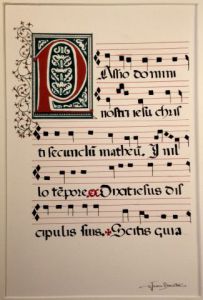 Passio domini
nostri iesu chris
ti secundu matheu. In il
lo tēpore Dixit iesus dis
cipulis suis. Scitis quia